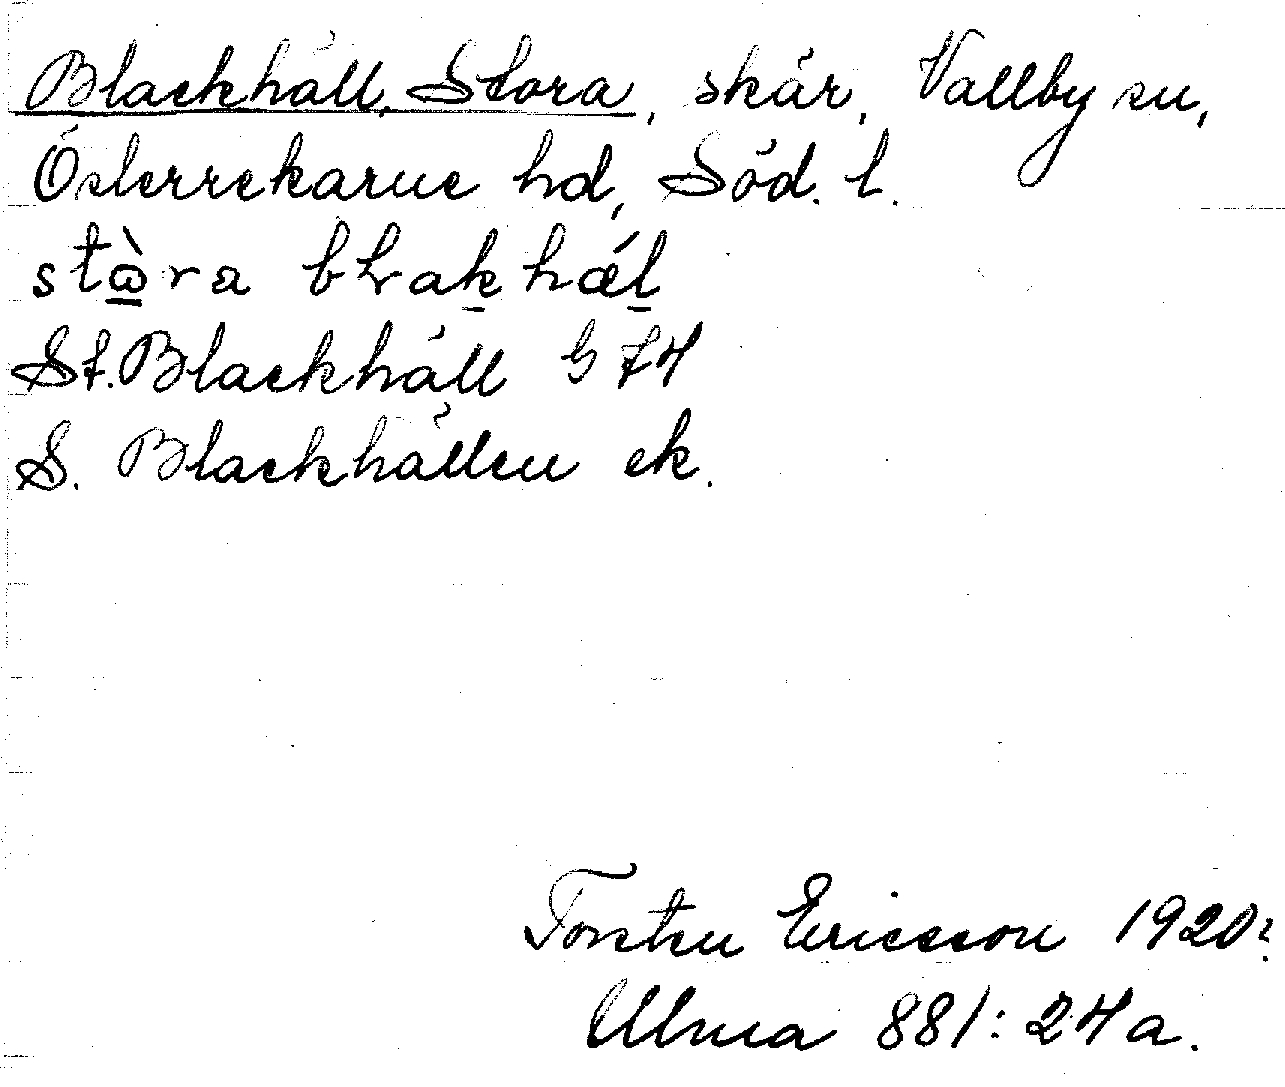 Blackhäll, Stora, skär, Vallby sn,
Österrekarne hd, Söd. l.
stὼ̲ra bļrak̲hǽl̲
St. Blackhäll G 74
S. Blackhällen ek.
Torsten Ericsson 1920?
Ulma 881:24a.